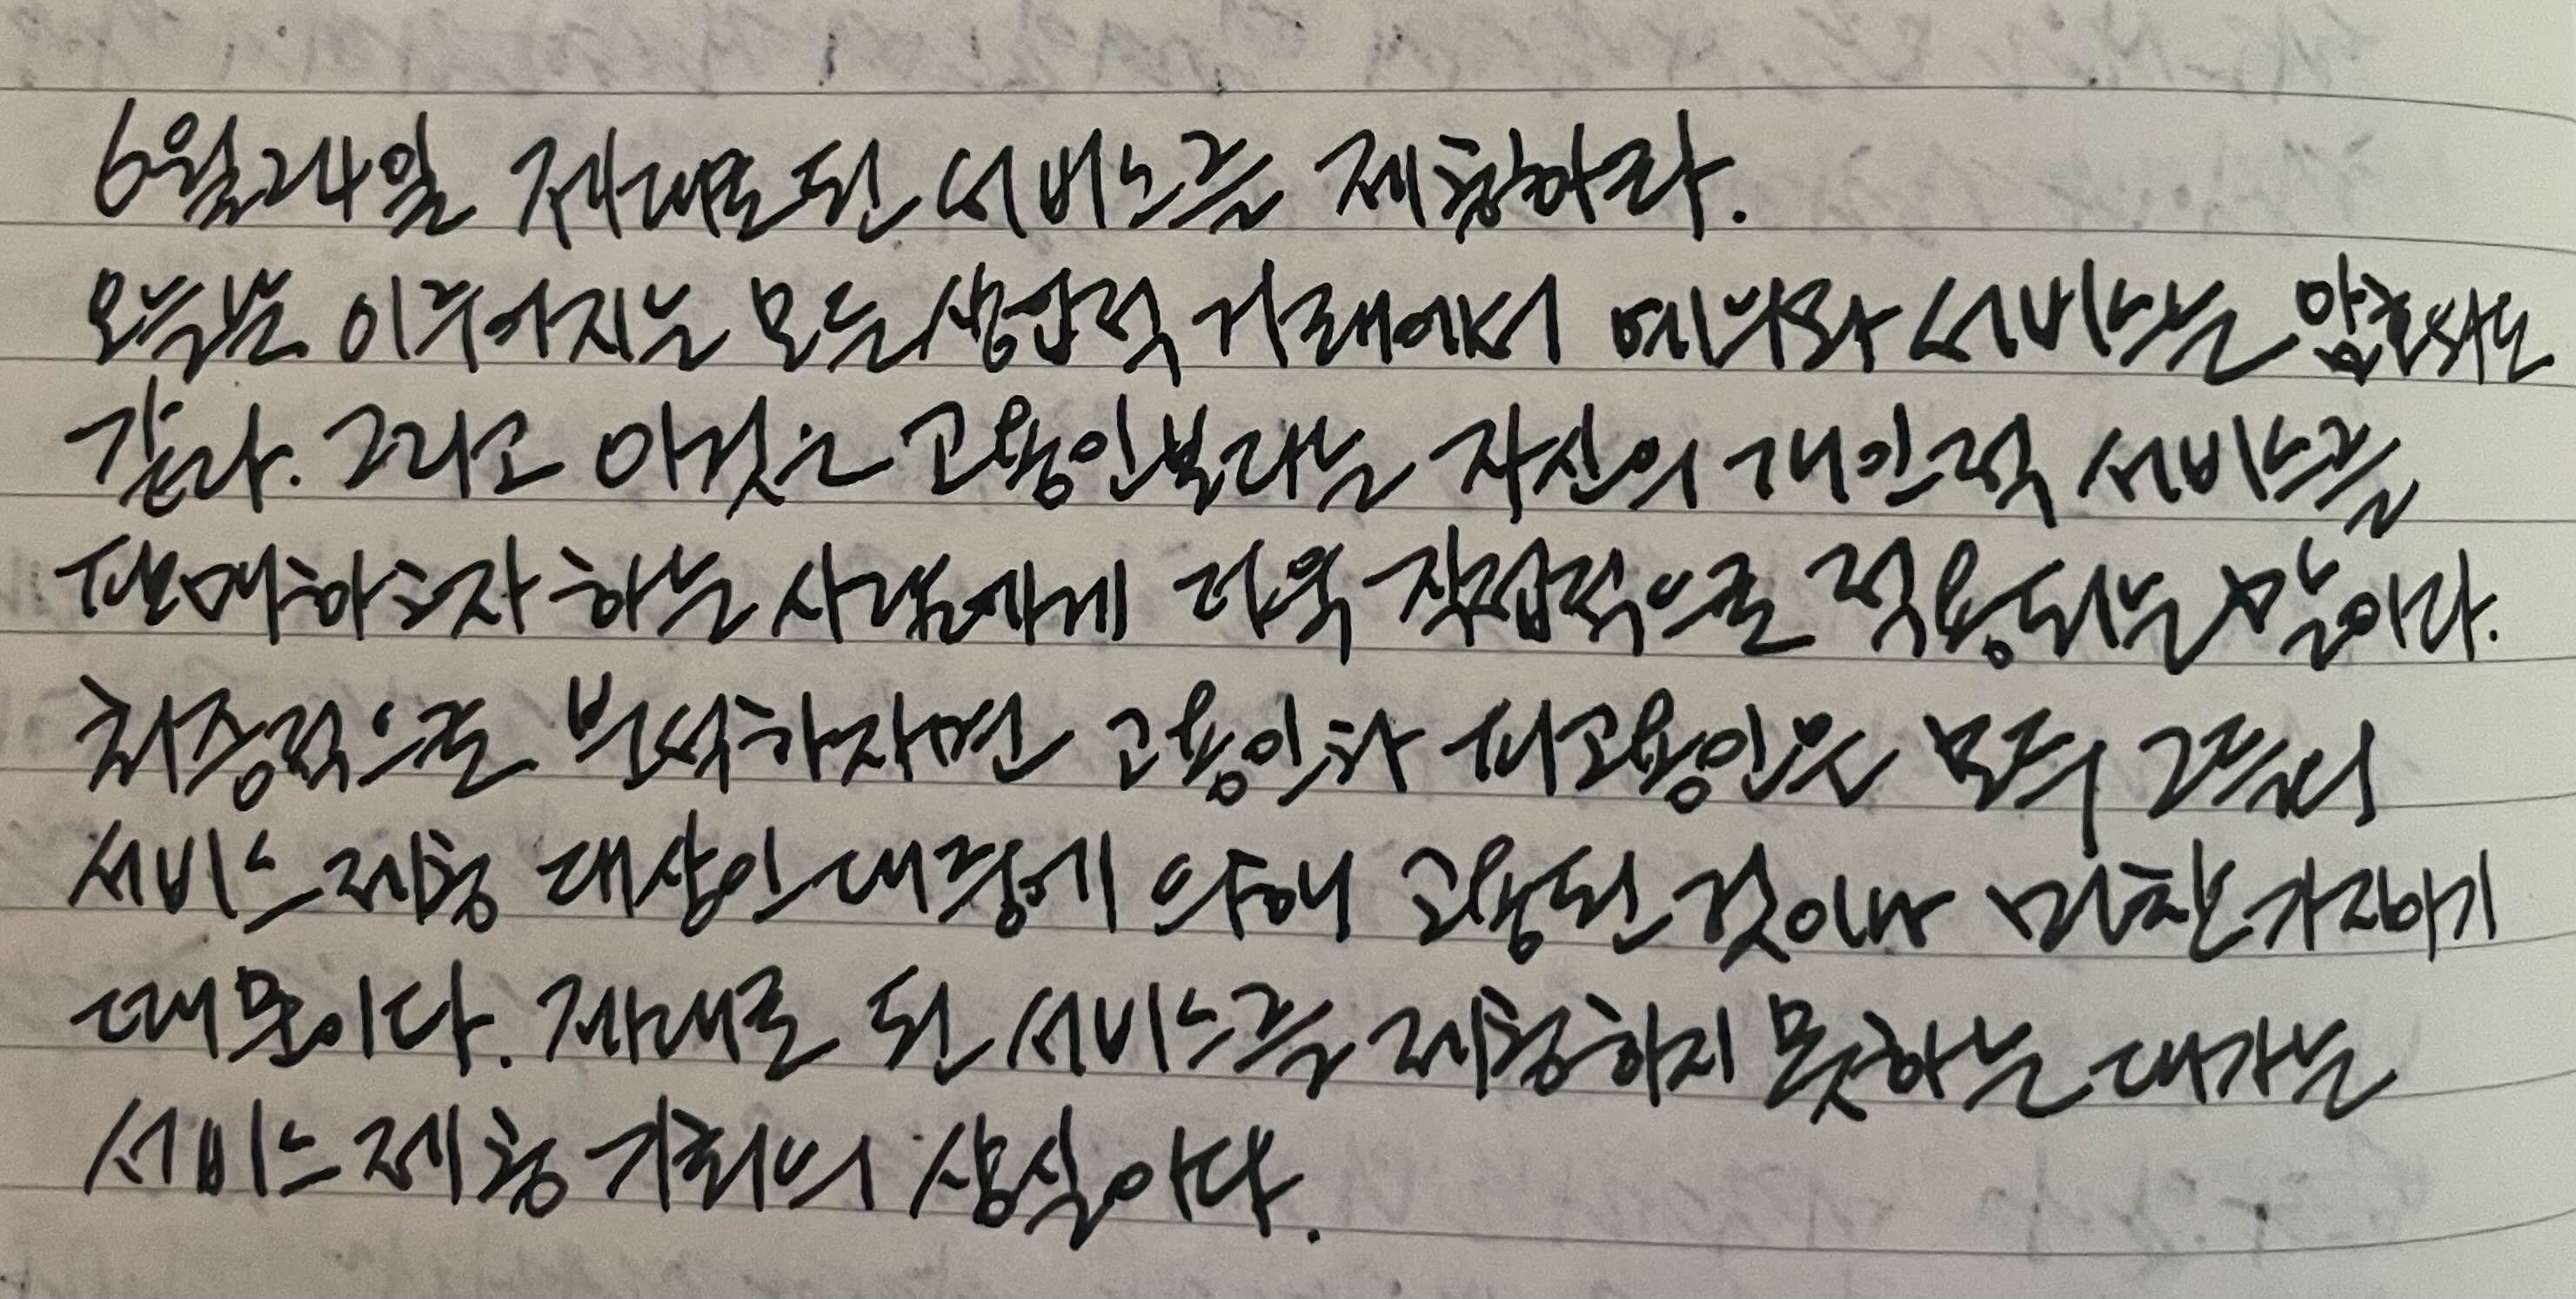 6월24일 제대로 된 서비스를 제공하라.
오늘날 이루어지는 모든 상업적 거래에서 예의와 서비스는 암호와도
같다. 그리고 이것은 고용인보다는 자신의 개인적 서비스를
판매하고자 하는 사람에게 더욱 직접적으로 적용되는 말이다.
최종적으로 분석하자면 고용인과 피고용인은 모두 그들의
서비스 제공 대상인 대중에게 의해 고용된 것이나 마찬가지이기
때문이다. 제대로 된 서비스를 제공하지 못하는 대가는
서비스 제공 기회의 상실이다.